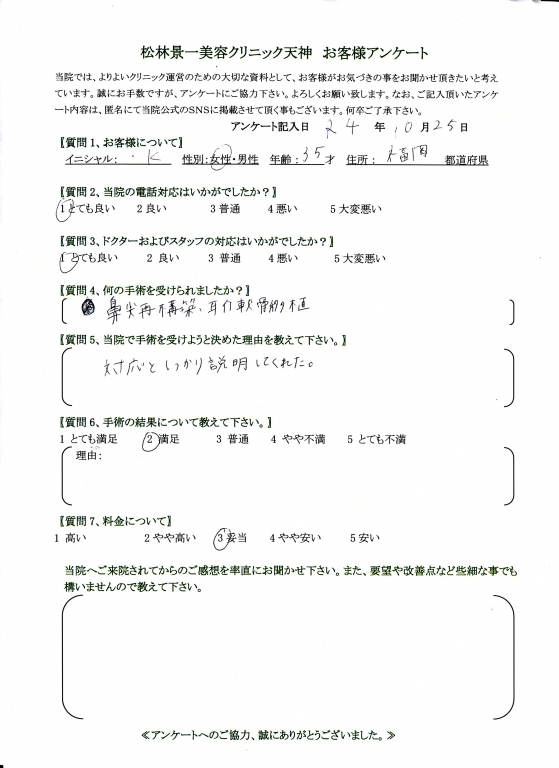 松林景一美容クリニック天神　お客様アンケート
当院では、よりよいクリニック運営のための大切な資料として、お客様がお気づきの事をお聞かせ頂きたいと考え
ています。誠にお手数ですが、アンケートにご協力下さい。よろしくお願い致します。なお、ご記入頂いたアンケ
ート内容は、匿名にて当院公式のSNSに掲載させて頂く事もございます。何卒ご了承下さい。
アンケート記入日　24　年　10月25日
【質問1、お客様について】
イニシャル：　・K　性別：女性・男性　年齢：35才　住所：　福岡　都道府県
【質問2、当院の電話対応はいかがでしたか？】
1とても良い　2良い　3普通　4悪い　5大変悪い
【質問3、ドクターおよびスタッフの対応はいかがでしたか？】
1とても良い　2 良い　3 普通　4悪い　5大変悪い
【質問4、何の手術を受けられましたか？】
鼻尖再構築、耳介軟骨移植
【質問5、当院で手術を受けようと決めた理由を教えて下さい。】
対応としっかり説明してくれた。
【質問6、手術の結果について教えて下さい。】
1 とても満足　2 満足　3 普通　4 やや不満　5 とても不満
理由：
【質問7、料金について】
1 高い　2やや高い　3妥当　4やや安い　5安い
当院へご来院されてからのご感想を率直にお聞かせ下さい。また、要望や改善点など些細な事でも
構いませんので教えて下さい。
≪アンケートへのご協力、誠にありがとうございました。≫